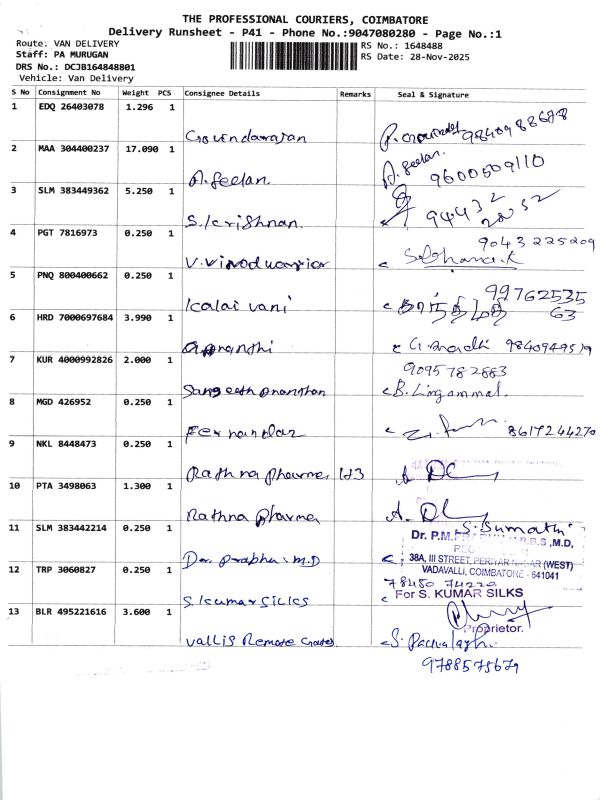 THE PROFESSIONAL COURIERS, COIMBATORE
Delivery Runsheet - P41 - Phone No.:9047080280 - Page No.:1
Route: VAN DELIVERY
RS No.: 1648488
Staff: PA MURUGAN
RS Date: 28-Nov-2025
DRS No.: DCJB164848801
Vehicle: Van Delivery
S No Consignment No Weight PCS Consignee Details Remarks Seal & Signature
1 EDQ 26403078 1.296 1
Govindarajan 9840988688
2 MAA 304400237 17.090 1
A. Geelan. A. Geelan. 9600509110
3 SLM 383449362 5.250 1
S. Krishnan. 94432
4 PGT 7816973 0.250 1
9043225209
V. Vinod warrior Sobhana.K
5 PNQ 800400662 0.250 1
Kalai vani 99762535
63
6 HRD 7000697684 3.990 1
9840949519
7 KUR 4000992826 2.000 1
9095782883
B. Lingammal.
8 MGD 426952 0.250 1
Fernandaz 8617244270
9 NKL 8448473 0.250 1
Rathna pharma
10 PTA 3498063 1.300 1
Rathna pharma
11 SLM 383442214 0.250 1
S. Sumathi
Dr. P.M. M.B.B.S.,M.D,
Dr. prabhu. M.D
38A, III STREET, PERIYAR NAGAR (WEST)
VADAVALLI, COIMBATORE - 641041
12 TRP 3060827 0.250 1
78480 74220
S. Kumar Silks
For S. KUMAR SILKS
13 BLR 495221616 3.600 1
Proprietor.
Vallis Remote
9788575679